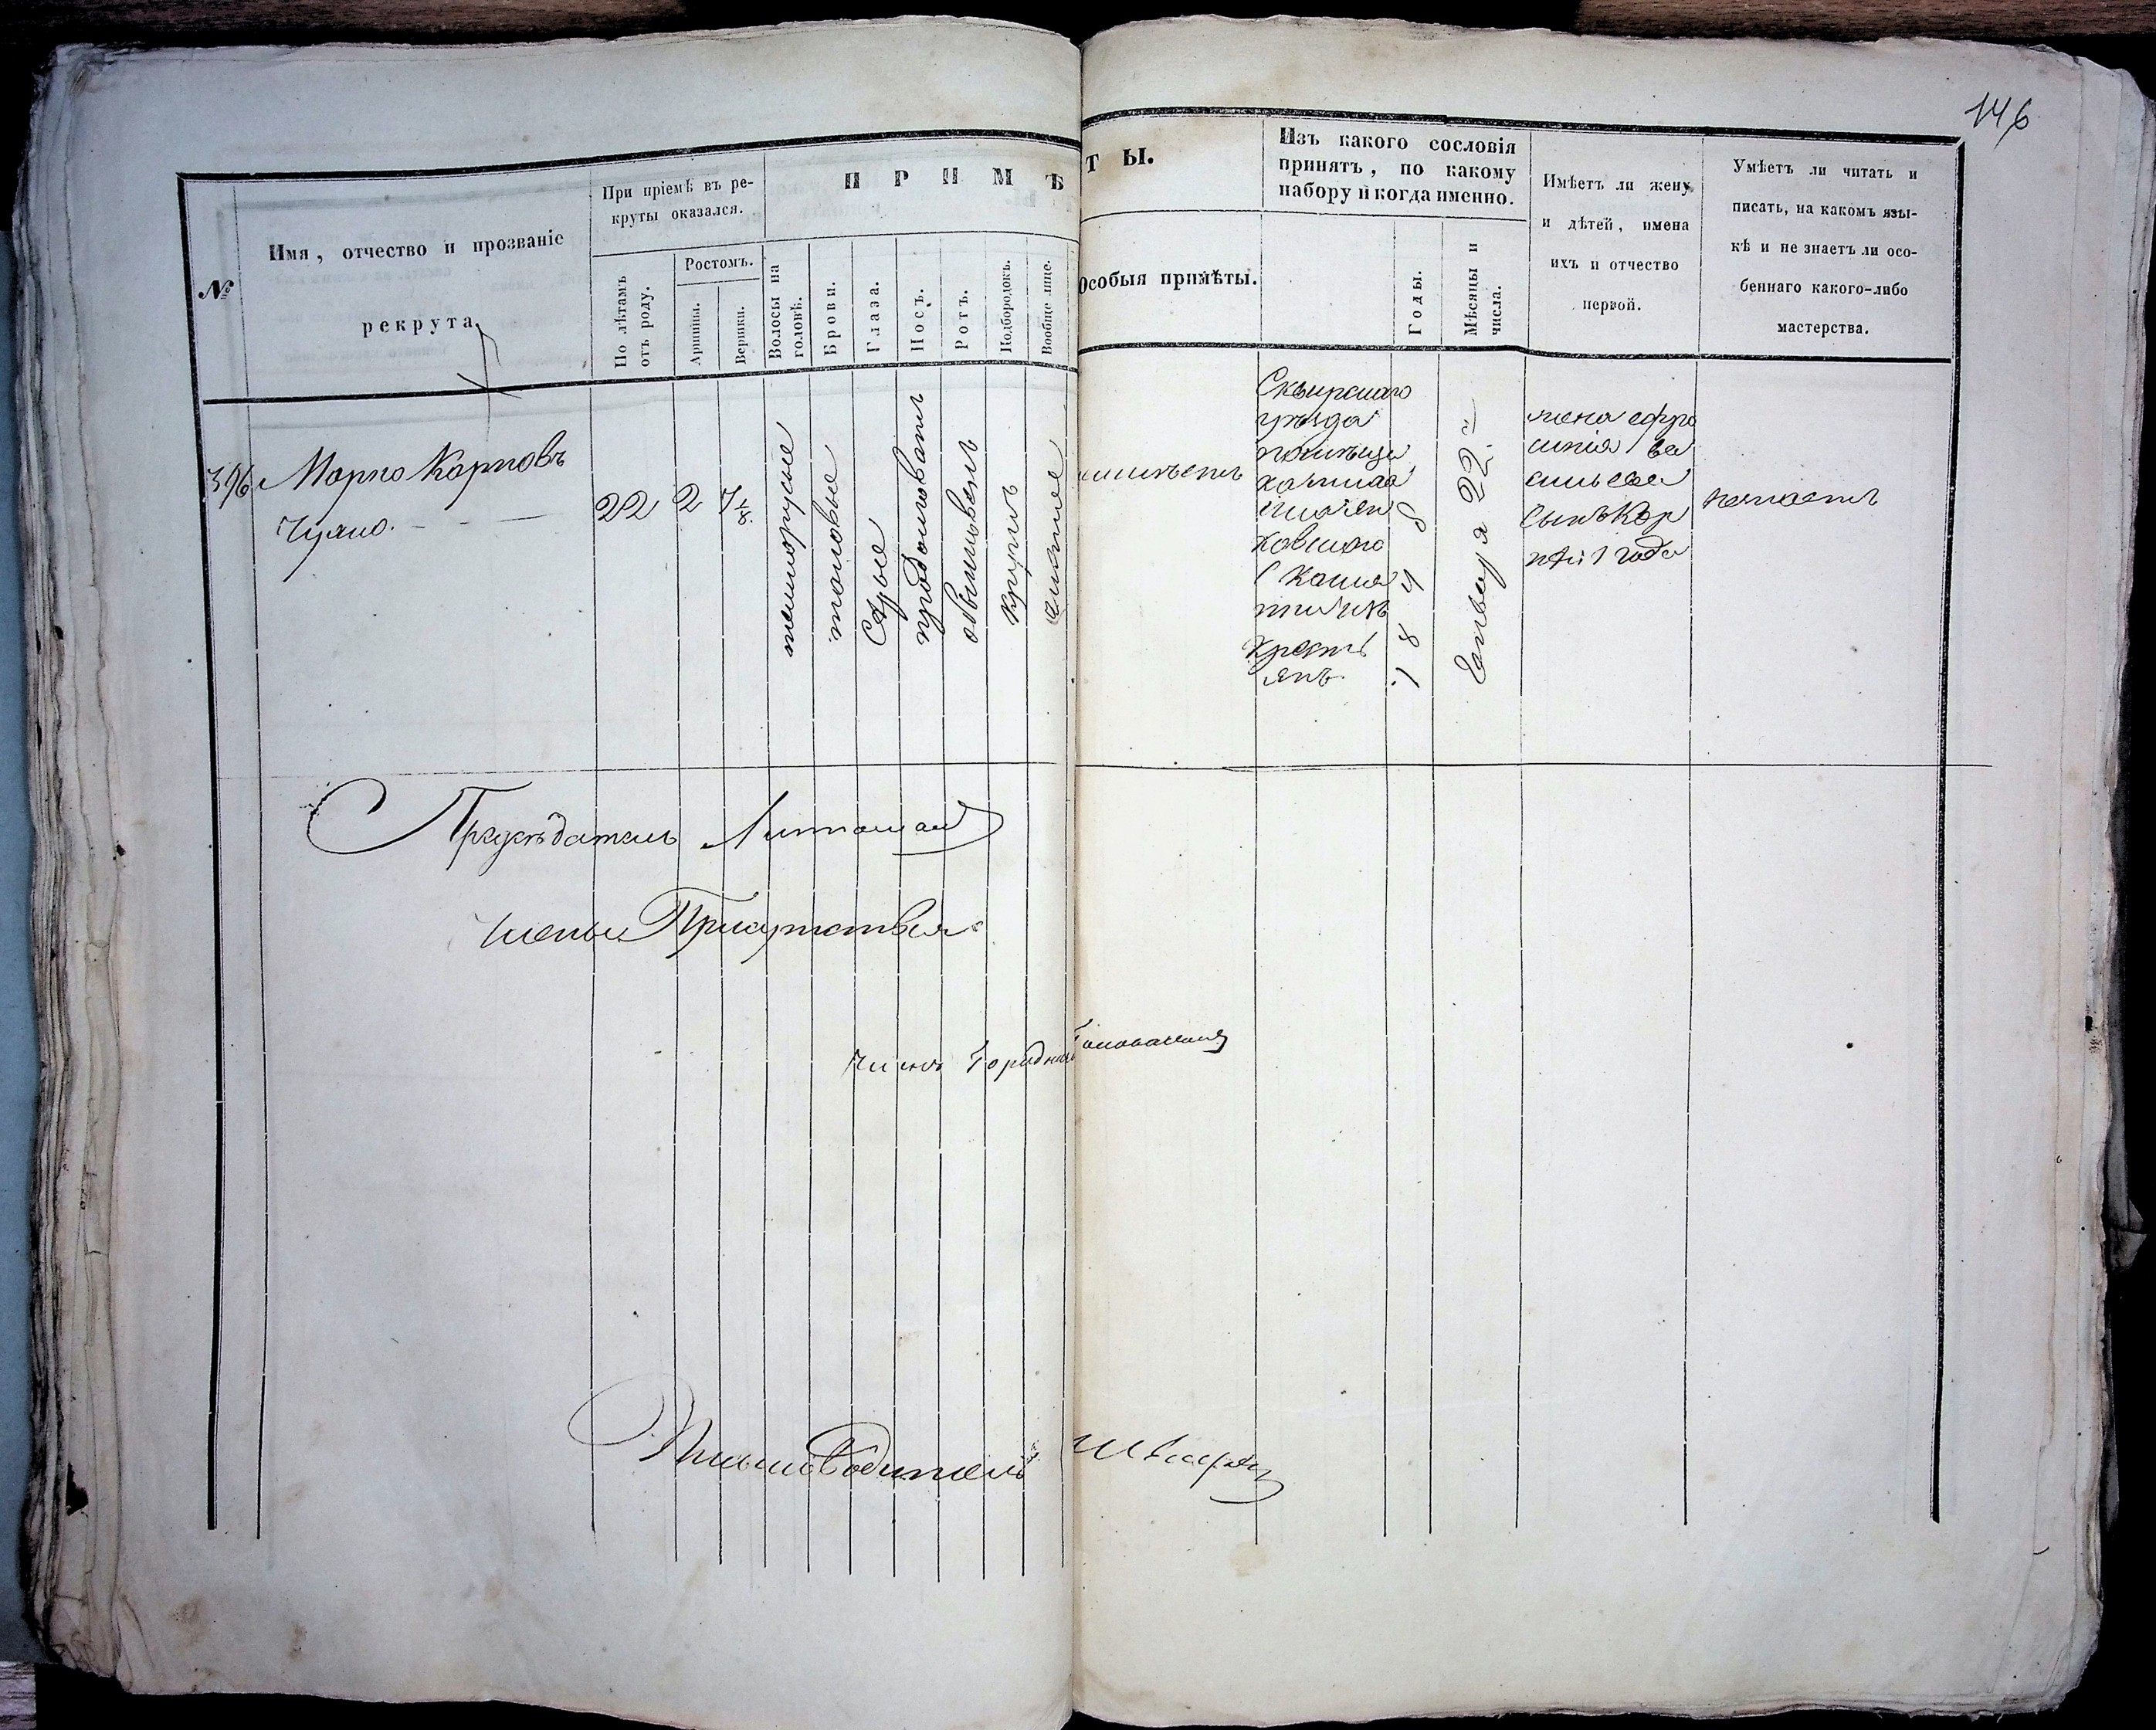 146
№
Имя, отчество и прозваніе
рекрута.
При пріемѣ въ ре-
круты оказался.
По лѣтамъ
отъ роду.
Ростомъ.
Аршины.
Вершки.
П Р И М Ѣ Т Ы.
Волосы на
головѣ.
Брови.
Глаза.
Носъ.
Ротъ.
Подбородокъ.
Вообще лице.
Особыя примѣты.
Изъ какого сословія
принятъ, по какому
набору и когда именно.
Годы.
Мѣсяцы и
числа.
Имѣетъ ли жену
и дѣтей, имена
ихъ и отчество
первой.
Умѣетъ ли читать и
писать, на какомъ язы-
кѣ и не знаетъ ли осо-
беннаго какого-либо
мастерства.
396
Марко Карповъ
22
2
7 1/8.
темнорусые
таковые
Сѣрые
продолговатъ
обыкновенъ
круглъ
чистое
неимѣетъ
Сквирскаго
уѣзда
помѣщи
крестьі
янъ.
1848
Генваря 22.
жена Ефро
синія Ва
сильева
сынъ Кар
пѣй 1 года
незнаетъ
Предсѣдатель
Члены Присутствія
Членъ Городничій